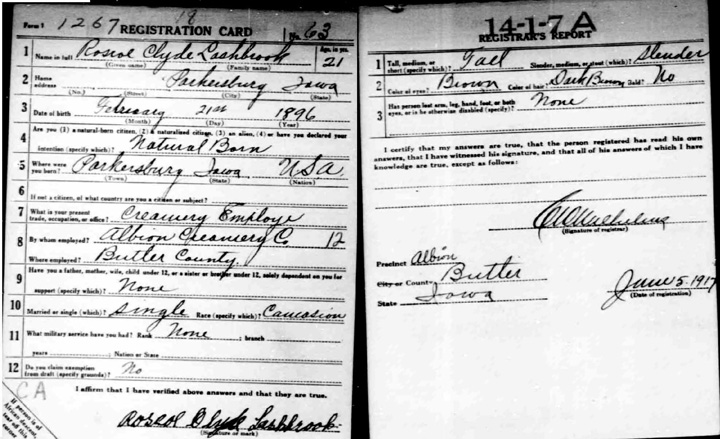 Form 1 1267 REGISTRATION CARD No. 63
18
1 Name in full Roscoe Clyde Lashbrook Age, in yrs. 21
(Given name) (Family name)
2 Home address Parkersburg Iowa
(No.) (Street) (City) (State)
3 Date of birth February 21st 1896
(Month) (Day) (Year)
4 Are you (1) a natural-born citizen, (2) a naturalized citizen, (3) an alien, (4) or have you declared your
intention (specify which)? Natural Born
5 Where were you born? Parkersburg Iowa USA
(Town) (State) (Nation)
6 If not a citizen, of what country are you a citizen or subject?
7 What is your present trade, occupation, or office? Creamery Employe
8 By whom employed? Albion Creamery Co 12
Where employed? Butler County
9 Have you a father, mother, wife, child under 12, or a sister or brother under 12, solely dependent on you for
support (specify which)? None
10 Married or single (which)? Single Race (specify which)? Caucasion
11 What military service have you had? Rank None ; branch
years ; Nation or State
12 Do you claim exemption from draft (specify grounds)? No
I affirm that I have verified above answers and that they are true.
CA
If person is of
African descent,
tear off this
corner
Roscoe Clyde Lashbrook
(Signature or mark)
14-1-7 A
REGISTRAR'S REPORT
1 Tall, medium, or short (specify which)? Tall Slender, medium, or stout (which)? Slender
2 Color of eyes? Brown Color of hair? Dark Brown Bald? No
3 Has person lost arm, leg, hand, foot, or both
eyes, or is he otherwise disabled (specify)? None
I certify that my answers are true, that the person registered has read his own
answers, that I have witnessed his signature, and that all of his answers of which I have
knowledge are true, except as follows:
(Signature of registrar)
Precinct Albion
City or County Butler
State Iowa
June 5. 1917
(Date of registration)